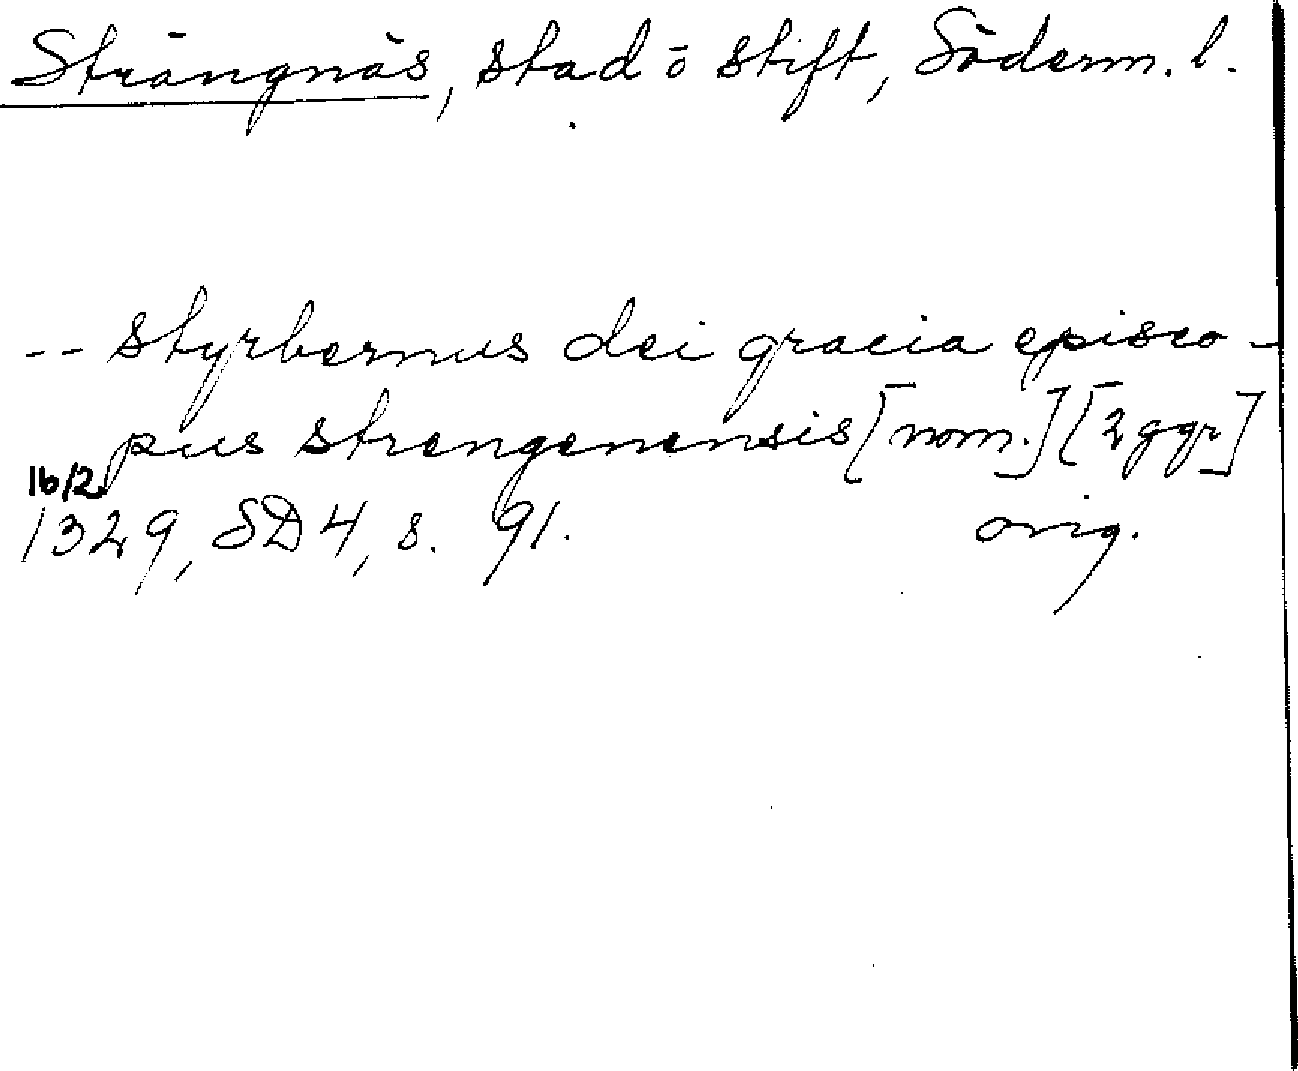 Strängnäs, stad o stift, Söderm. l.
-- styrbernus dei gracia episco-
pus strengenensis [nom.] [2 ggr]
16/2
1329, SD 4, s. 91. orig.